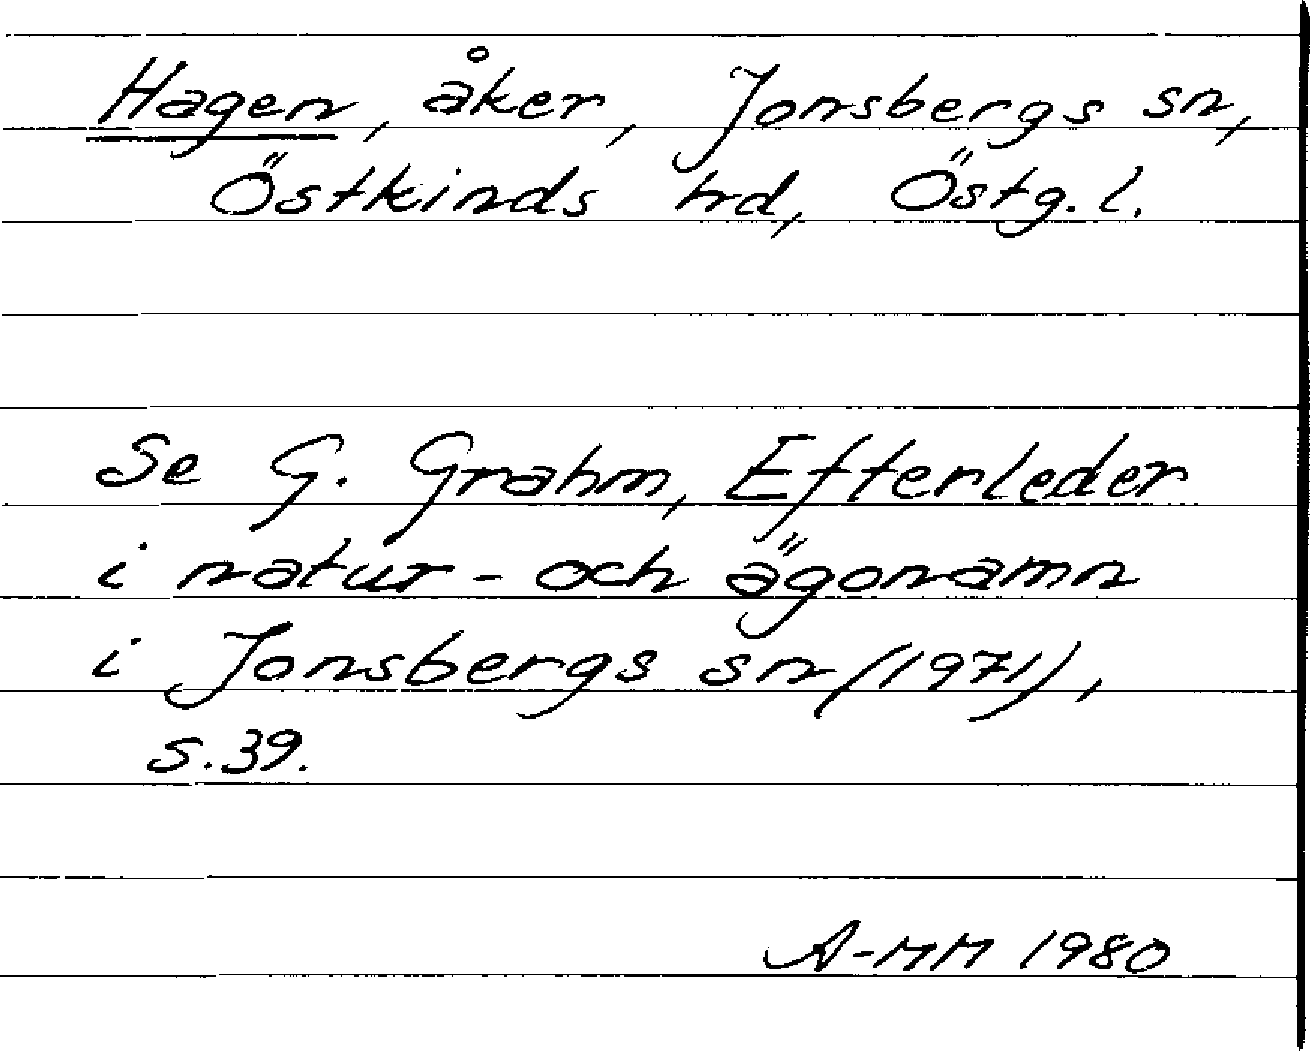 Hagen, åker, Jonsbergs sn,
Östkinds hd, Östg.l.
Se G. Grahm, Efterleder
i natur- och ägonamn
i Jonsbergs sn (1971),
s.39.
A-MM 1980